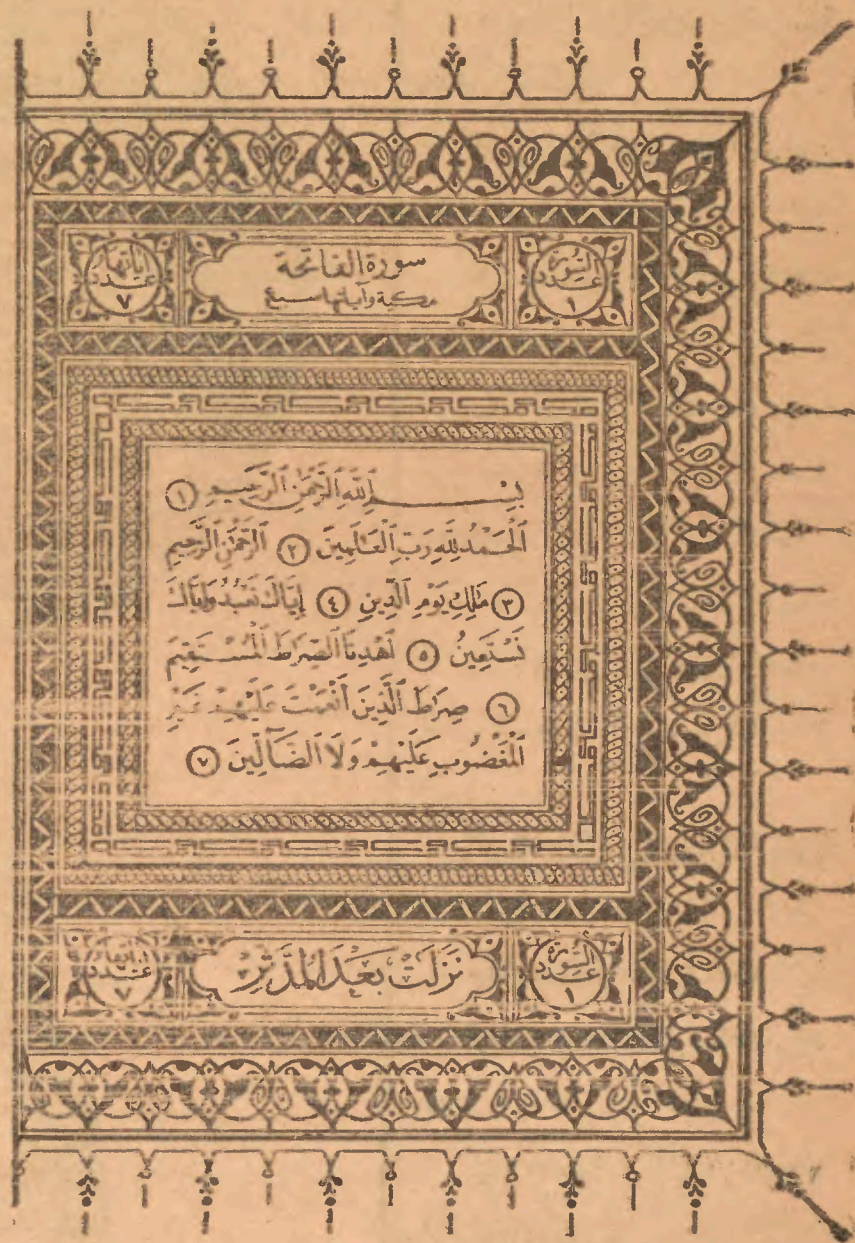 السورة
عدد
١
سورة الفاتحة
مكية وآياتها سبع
آياتها
عدد
٧
بِسْمِ ٱللَّهِ ٱلرَّحْمَٰنِ ٱلرَّحِيمِ ١
ٱلْحَمْدُ لِلَّهِ رَبِّ ٱلْعَالَمِينَ ٢ ٱلرَّحْمَٰنِ ٱلرَّحِيمِ
٣ مَٰلِكِ يَوْمِ ٱلدِّينِ ٤ إِيَّاكَ نَعْبُدُ وَإِيَّاكَ
نَسْتَعِينُ ٥ ٱهْدِنَا ٱلصِّرَٰطَ ٱلْمُسْتَقِيمَ
٦ صِرَٰطَ ٱلَّذِينَ أَنْعَمْتَ عَلَيْهِمْ غَيْرِ
ٱلْمَغْضُوبِ عَلَيْهِمْ وَلَا ٱلضَّآلِّينَ ٧
السورة
عدد
١
نَزَلَتْ بَعْدَ الْمُدَّثِّرِ
آياتها
عدد
٧